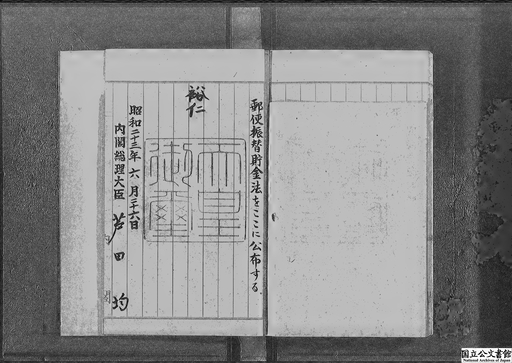 郵便振替貯金法をここに公布する
裕仁
天皇
御璽
昭和二十三年六月二十六日
内閣総理大臣 芦田均
国立公文書館
National Archives of Japan